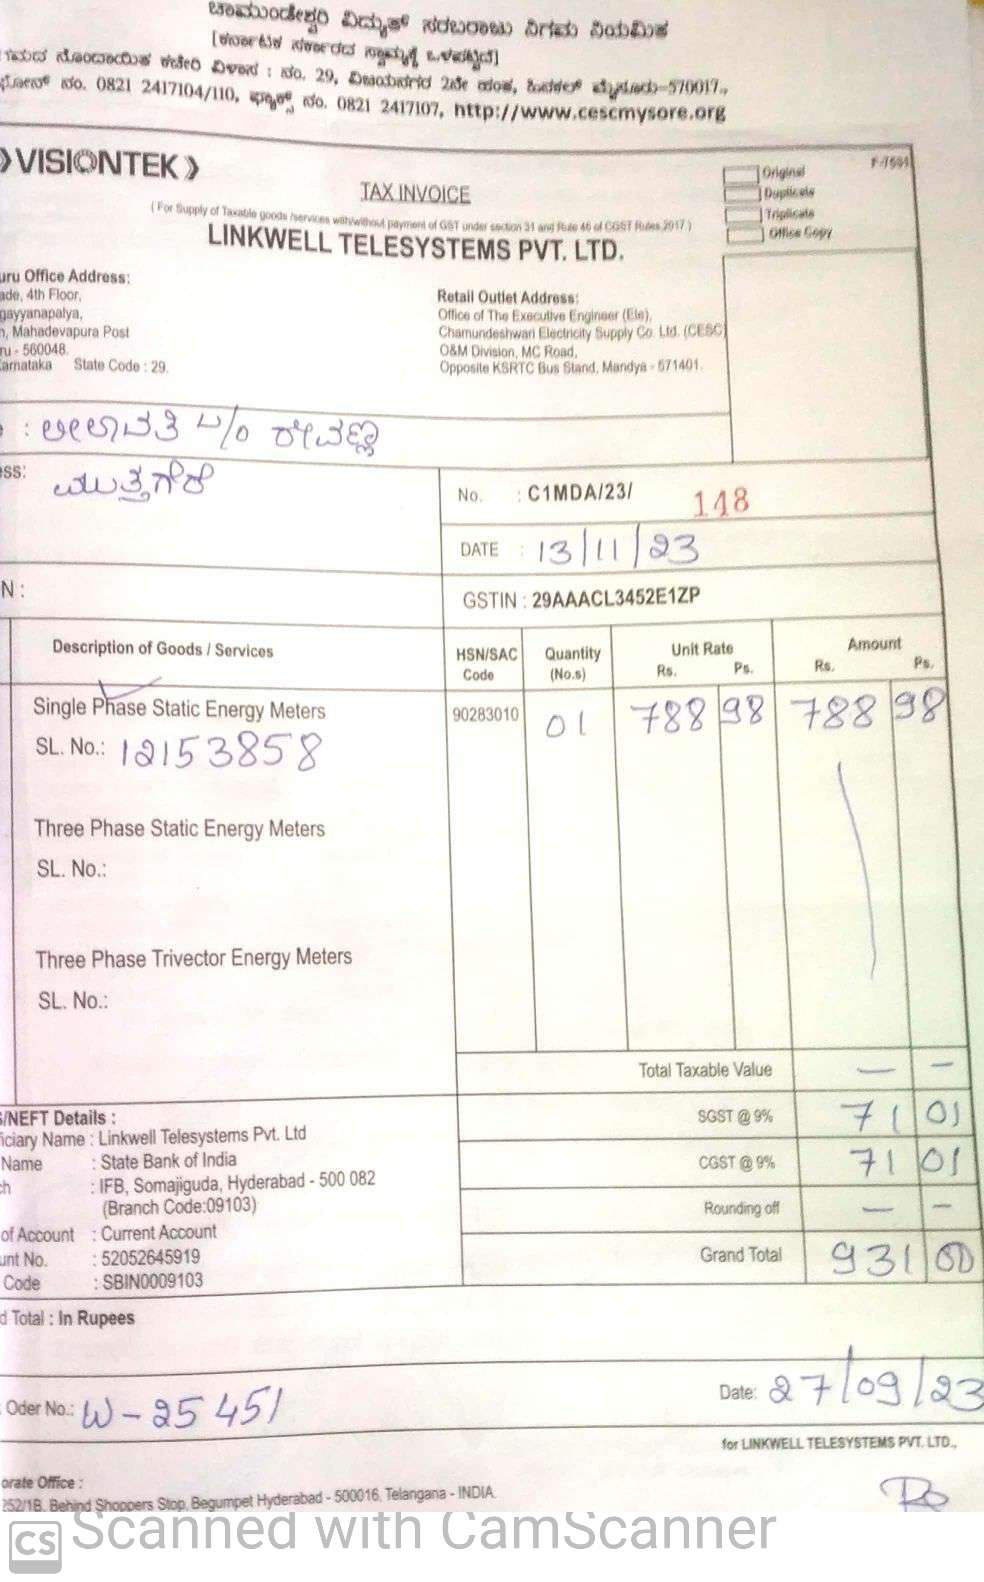 ಚಾಮುಂಡೇಶ್ವರಿ ವಿದ್ಯುತ್ ಸರಬರಾಜು ನಿಗಮ ನಿಯಮಿತ
(ಕರ್ನಾಟಕ ಸರ್ಕಾರದ ಸ್ವಾಮ್ಯಕ್ಕೆ ಒಳಪಟ್ಟಿದೆ)
ನೋಂದಾಯಿತ ಕಚೇರಿ ವಿಳಾಸ : ನಂ. 29, ವಿಜಯನಗರ 2ನೇ ಹಂತ, ಹಿನಕಲ್ ಮೈಸೂರು-570017.,
ಫೋನ್ ನಂ. 0821 2417104/110, ಫ್ಯಾಕ್ಸ್ ನಂ. 0821 2417107, http://www.cescmysore.org
VISIONTEK
F-7591
Original
Duplicate
Triplicate
Office Copy
TAX INVOICE
( For Supply of Taxable goods /services with/without payment of GST under section 31 and Rule 46 of CGST Rules 2017 )
LINKWELL TELESYSTEMS PVT. LTD.
uru Office Address:
ade, 4th Floor,
gayyanapalya,
n, Mahadevapura Post
ru - 560048.
arnataka State Code : 29.
Retail Outlet Address:
Office of The Executive Engineer (Ele),
Chamundeshwari Electricity Supply Co. Ltd. (CESC)
O&M Division, MC Road,
Opposite KSRTC Bus Stand, Mandya - 571401.
: ಲೀಲಾವತಿ W/o ರೇವಣ್ಣ
ess: ಮುತ್ತಗೆರೆ
No. : C1MDA/23/ 148
DATE : 13/11/23
N :
GSTIN : 29AAACL3452E1ZP
Description of Goods / Services HSN/SAC Code Quantity (No.s) Unit Rate Rs. Ps. Amount Rs. Ps.
Single Phase Static Energy Meters 90283010 01 788 98 788 98
SL. No.: 12153858
Three Phase Static Energy Meters
SL. No.:
Three Phase Trivector Energy Meters
SL. No.:
Total Taxable Value — –
SGST @ 9% 71 01
CGST @ 9% 71 01
Rounding off — –
Grand Total 931 00
S/NEFT Details :
ficiary Name : Linkwell Telesystems Pvt. Ltd
Name : State Bank of India
ch : IFB, Somajiguda, Hyderabad - 500 082
(Branch Code:09103)
of Account : Current Account
unt No. : 52052645919
Code : SBIN0009103
d Total : In Rupees
Oder No.: W-25451
Date: 27/09/23
for LINKWELL TELESYSTEMS PVT. LTD.,
orate Office :
252/1B, Behind Shoppers Stop, Begumpet Hyderabad - 500016, Telangana - INDIA.
CS Scanned with CamScanner